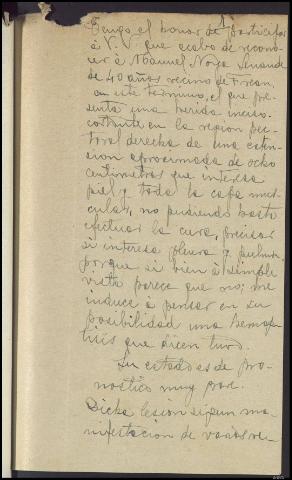 Tengo el honor de participar
á V. que acabo de recono-
cer á Manuel Noya
de 40 años vecino de
en este término, el que pre-
senta una herida inciso
cortante en la region pec-
toral derecha de una esten-
sion aproximada de ocho
centimetros que interesa
piel y toda la capa mus-
cular, no pudiendo hasta
efectuar la cura, precisar
si interesa pleura y pulmon
porque si bien á simple
vista parece que no; me
induce á pensar en su
posibilidad una hemop-
tisis que dicen tuvo.
Su estado es de pro-
nostico muy grave.
Dicha lesion segun ma-
nifestacion de varios ve-